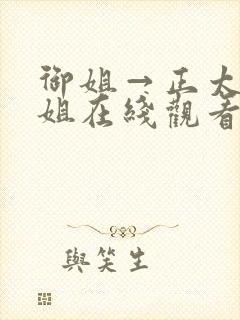 御姐→正太
姐在綫觀看
與笑生